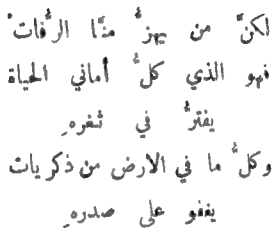 لكنَّ من يهزُّ منَّا الرُّفاتْ
فهو الذي كلُّ أماني الحياة
يفترُّ في ثغرهِ
وكلُّ ما في الارض من ذكريات
يغفو على صدرهِ